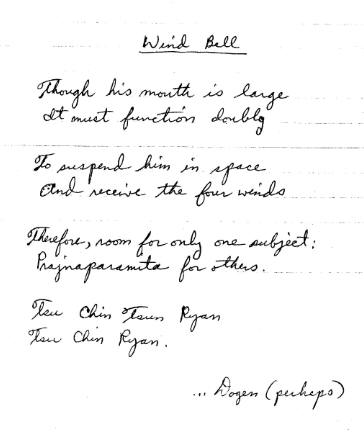 Wind Bell
Though his mouth is large
It must function doubly
To suspend him in space
And receive the four winds
Therefore, room for only one subject:
Prajnaparamita for others.
Tsu Chin Tsun Ryan
Tsu Chin Ryan.
... Dogen (perhaps)